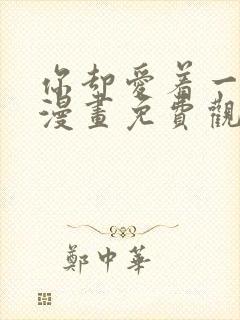 你却愛着一
漫畫免費觀
鄭中華